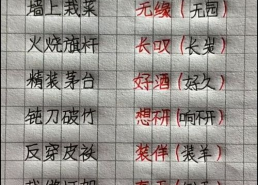 墙上栽菜 无缘(无园)
火烧旗杆 长叹(长炭)
精装茅台 好酒(好久)
钝刀破竹 想不开(响不开)
反穿皮袄 装佯(装羊)